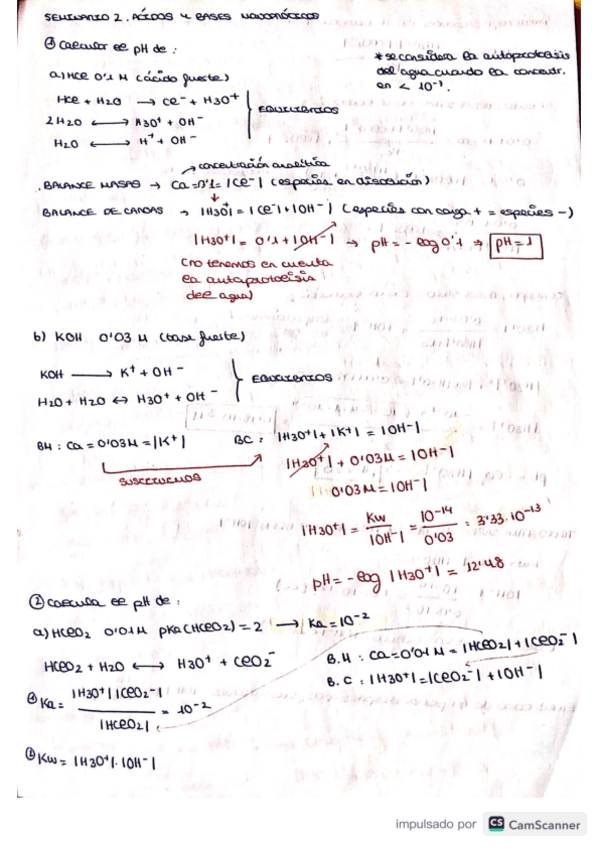 SEMINARIO 2. ÁCIDOS Y BASES MONOPRÓTICOS
① Calcular el pH de :
* se considera la autoprotolisis
del agua cuando la concentr.
en < 10⁻⁷.
a) HCl 0'1 M (ácido fuerte)
HCl + H2O → Cl⁻ + H3O⁺
2H2O ⟷ H3O⁺ + OH⁻
H2O ⟷ H⁺ + OH⁻
EQUILIBRIOS
concentración analítica
BALANCE MASAS → Ca=0'1= |Cl⁻| (especies en disolución)
BALANCE DE CARGAS → |H3O⁺| = |Cl⁻|+|OH⁻| (especies con carga + = especies -)
|H3O⁺| = 0'1 + |OH⁻| → pH = -log 0'1 ⇒ pH=1
(no tenemos en cuenta
la autoprotolisis
del agua)
b) KOH 0'03 M (base fuerte)
KOH → K⁺ + OH⁻
H2O + H2O ↔ H3O⁺ + OH⁻
EQUILIBRIOS
BM : Ca = 0'03M = |K⁺| BC : |H3O⁺| + |K⁺| = |OH⁻|
SUSTITUIMOS
|H3O⁺| + 0'03M = |OH⁻|
0'03 M = |OH⁻|
|H3O⁺| = Kw / |OH⁻| = 10⁻¹⁴ / 0'03 = 3'33·10⁻¹³
pH = -log |H3O⁺| = 12'48
② Calcula el pH de :
a) HClO2 0'01M pKa(HClO2) = 2 → Ka = 10⁻²
HClO2 + H2O ⟷ H3O⁺ + ClO2⁻
B.M : Ca = 0'01 M = |HClO2| + |ClO2⁻|
B.C : |H3O⁺| = |ClO2⁻| + |OH⁻|
① Ka = |H3O⁺| |ClO2⁻| / |HClO2| = 10⁻²
② Kw = |H3O⁺|·|OH⁻|
impulsado por CS CamScanner